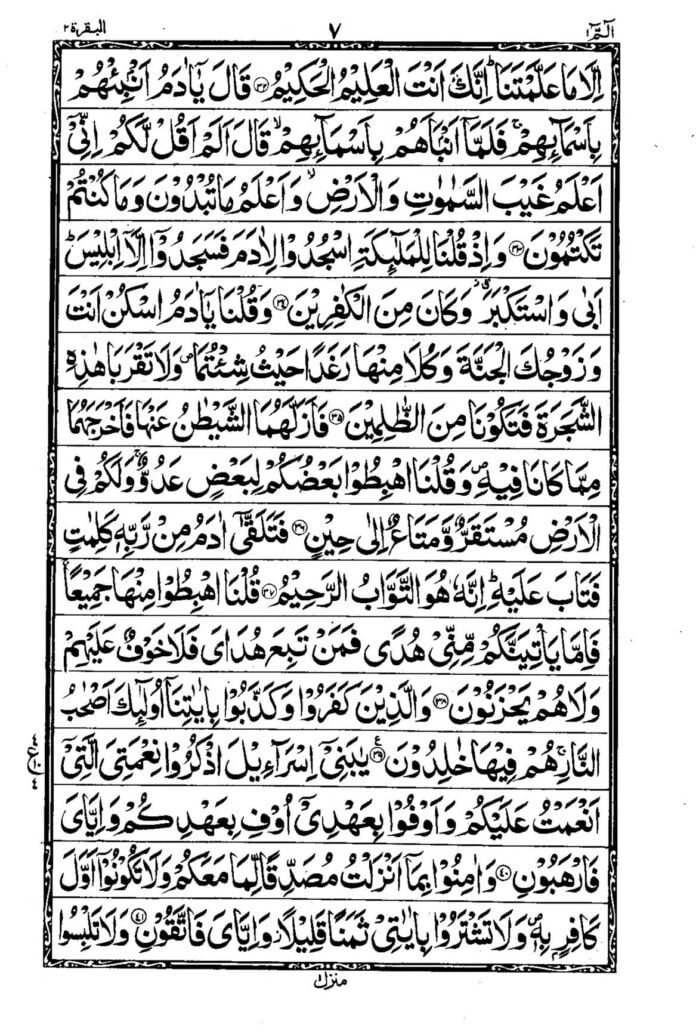 الٓمّٓ ١
٧
البقرة ٢
اِلَّا مَا عَلَّمْتَنَا ؕ اِنَّكَ اَنْتَ الْعَلِيْمُ الْحَكِيْمُ ﴿۳۲﴾ قَالَ يٰۤاٰدَمُ اَنْۢبِئْهُمْ
بِاَسْمَآئِهِمْ ۚ فَلَمَّاۤ اَنْۢبَاَهُمْ بِاَسْمَآئِهِمْ ۙ قَالَ اَلَمْ اَقُلْ لَّكُمْ اِنِّیْۤ
اَعْلَمُ غَيْبَ السَّمٰوٰتِ وَالْاَرْضِ ۙ وَاَعْلَمُ مَا تُبْدُوْنَ وَمَا كُنْتُمْ
تَكْتُمُوْنَ ﴿۳۳﴾ وَاِذْ قُلْنَا لِلْمَلٰٓئِكَةِ اسْجُدُوْا لِاٰدَمَ فَسَجَدُوْۤا اِلَّاۤ اِبْلِيْسَ ؕ
اَبٰی وَاسْتَكْبَرَ ۗ وَكَانَ مِنَ الْكٰفِرِيْنَ ﴿۳۴﴾ وَقُلْنَا يٰۤاٰدَمُ اسْكُنْ اَنْتَ
وَزَوْجُكَ الْجَنَّةَ وَكُلَا مِنْهَا رَغَدًا حَيْثُ شِئْتُمَا ۪ وَلَا تَقْرَبَا هٰذِهِ
الشَّجَرَةَ فَتَكُوْنَا مِنَ الظّٰلِمِيْنَ ﴿۳۵﴾ فَاَزَلَّهُمَا الشَّيْطٰنُ عَنْهَا فَاَخْرَجَهُمَا
مِمَّا كَانَا فِيْهِ ۪ وَقُلْنَا اهْبِطُوْا بَعْضُكُمْ لِبَعْضٍ عَدُوٌّ ۚ وَلَكُمْ فِی
الْاَرْضِ مُسْتَقَرٌّ وَّمَتَاعٌ اِلٰی حِيْنٍ ﴿۳۶﴾ فَتَلَقّٰۤی اٰدَمُ مِنْ رَّبِّهٖ كَلِمٰتٍ
فَتَابَ عَلَيْهِ ؕ اِنَّهٗ هُوَ التَّوَّابُ الرَّحِيْمُ ﴿۳۷﴾ قُلْنَا اهْبِطُوْا مِنْهَا جَمِيْعًا ۚ
فَاِمَّا يَاْتِيَنَّكُمْ مِّنِّیْ هُدًی فَمَنْ تَبِعَ هُدَایَ فَلَا خَوْفٌ عَلَيْهِمْ
وَلَا هُمْ يَحْزَنُوْنَ ﴿۳۸﴾ وَالَّذِيْنَ كَفَرُوْا وَكَذَّبُوْا بِاٰيٰتِنَاۤ اُولٰٓئِكَ اَصْحٰبُ
النَّارِ ۚ هُمْ فِيْهَا خٰلِدُوْنَ ﴿۳۹﴾ ع يٰبَنِیْۤ اِسْرَآءِيْلَ اذْكُرُوْا نِعْمَتِیَ الَّتِیْۤ
٤ ع ١٠ ٤
اَنْعَمْتُ عَلَيْكُمْ وَاَوْفُوْا بِعَهْدِیْۤ اُوْفِ بِعَهْدِكُمْ وَاِيَّایَ
فَارْهَبُوْنِ ﴿۴۰﴾ وَاٰمِنُوْا بِمَاۤ اَنْزَلْتُ مُصَدِّقًا لِّمَا مَعَكُمْ وَلَا تَكُوْنُوْۤا اَوَّلَ
كَافِرٍۭ بِهٖ ۪ وَلَا تَشْتَرُوْا بِاٰيٰتِیْ ثَمَنًا قَلِيْلًا ؗ وَّاِيَّایَ فَاتَّقُوْنِ ﴿۴۱﴾ وَلَا تَلْبِسُوا
منزل ١